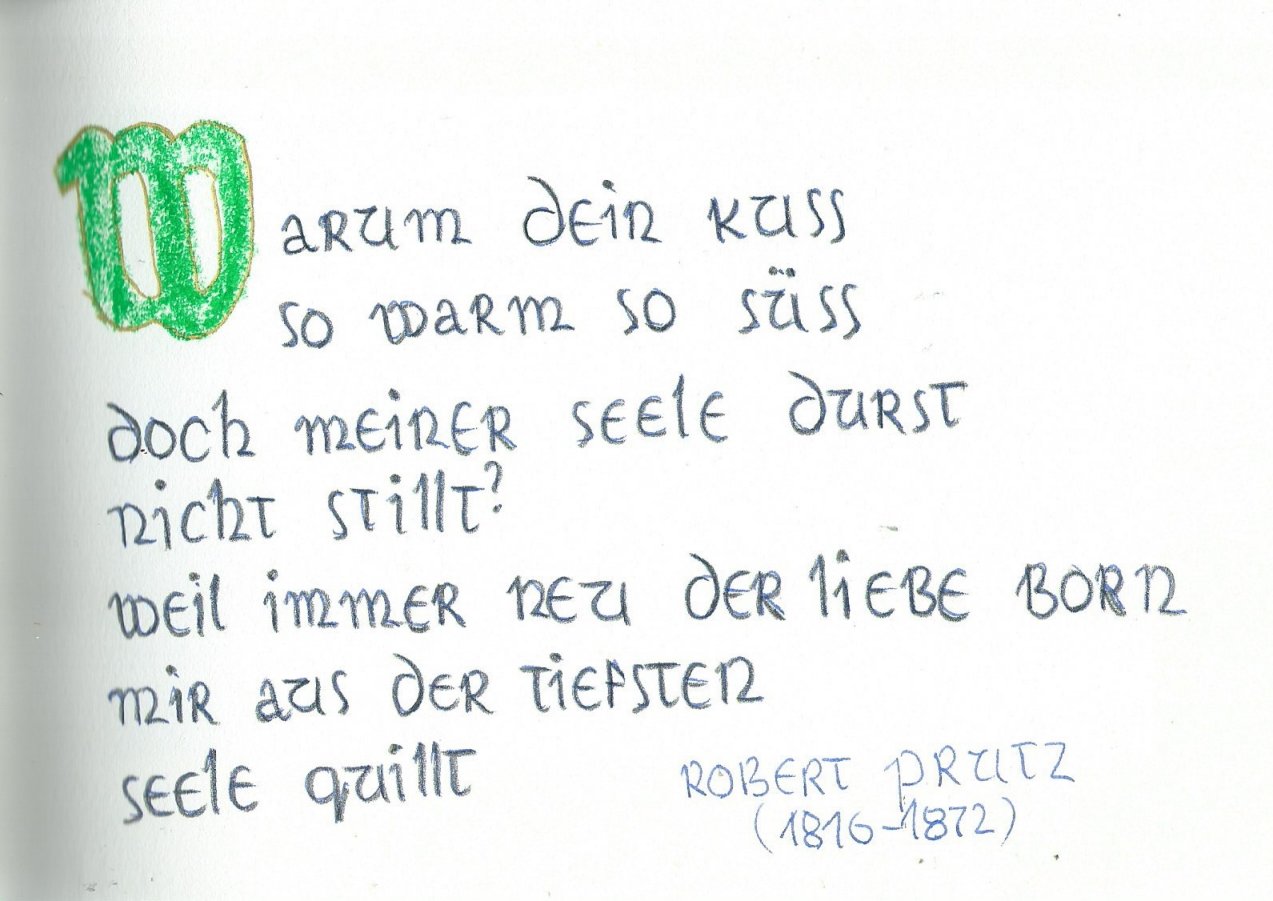 Warum dein kuss
so warm so süss
doch meiner seele durst
nicht stillt?
weil immer neu der liebe born
mir aus der tiefsten
seele quillt
ROBERT PRUTZ
(1816-1872)